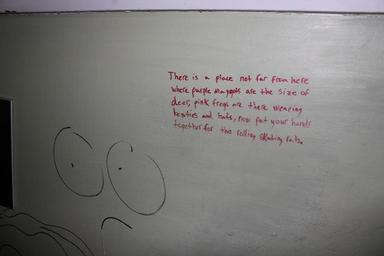 There is a place not far from here
where purple maggots are the size of
deer, pink frogs are there wearing
and hats, now put your hands
together for the rolling skating rats.